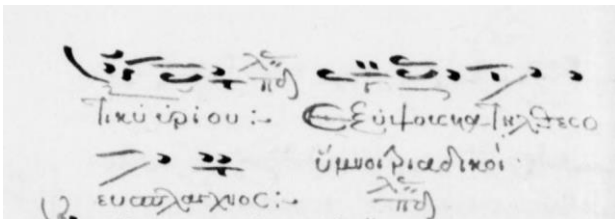 τι κυ υριου :~ Εξ υψους κατηλθες ο
ὕμνοι τριαδικοί
ευσπλαγχνος :~